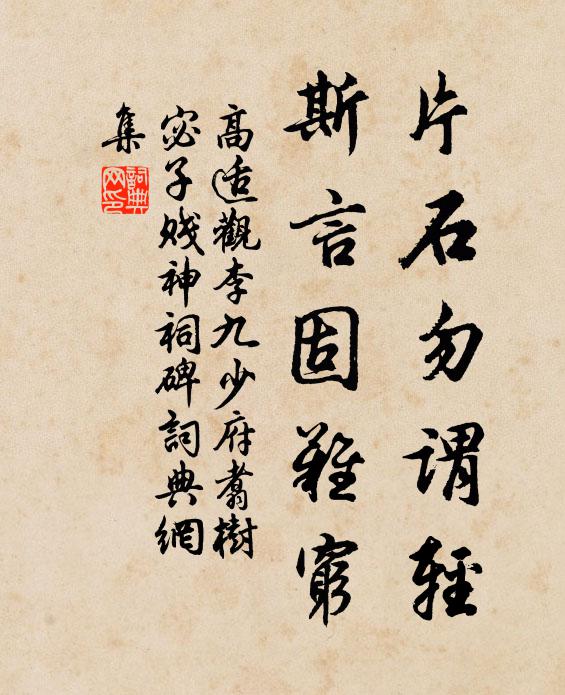 片石勿謂輕
斯言固難窮
高适觀李九少府翥樹
宓子賤神祠碑詞典網
集
詞典
网印